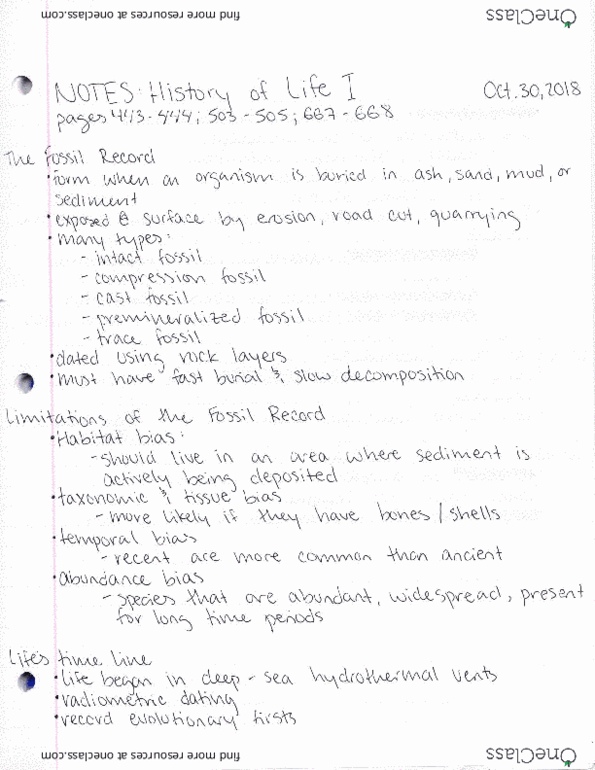 find more resources at oneclass.com
OneClass
NOTES: History of Life I
Oct. 30, 2018
pages 443-444; 503-505; 667-668
The Fossil Record
• form when an organism is buried in ash, sand, mud, or
sediment
• exposed @ surface by erosion, road cut, quarrying
• many types:
- intact fossil
- compression fossil
- cast fossil
- premineralized fossil
- trace fossil
• dated using rock layers
• must have fast burial & slow decomposition
Limitations of the Fossil Record
• Habitat bias:
- should live in an area where sediment is
actively being deposited
• taxonomic & tissue bias
- more likely if they have bones/shells
• temporal bias
- recent are more common than ancient
• abundance bias
- species that are abundant, widespread, present
for long time periods
Life's time line
• life began in deep-sea hydrothermal vents
• radiometric dating
• record evolutionary firsts
find more resources at oneclass.com
OneClass